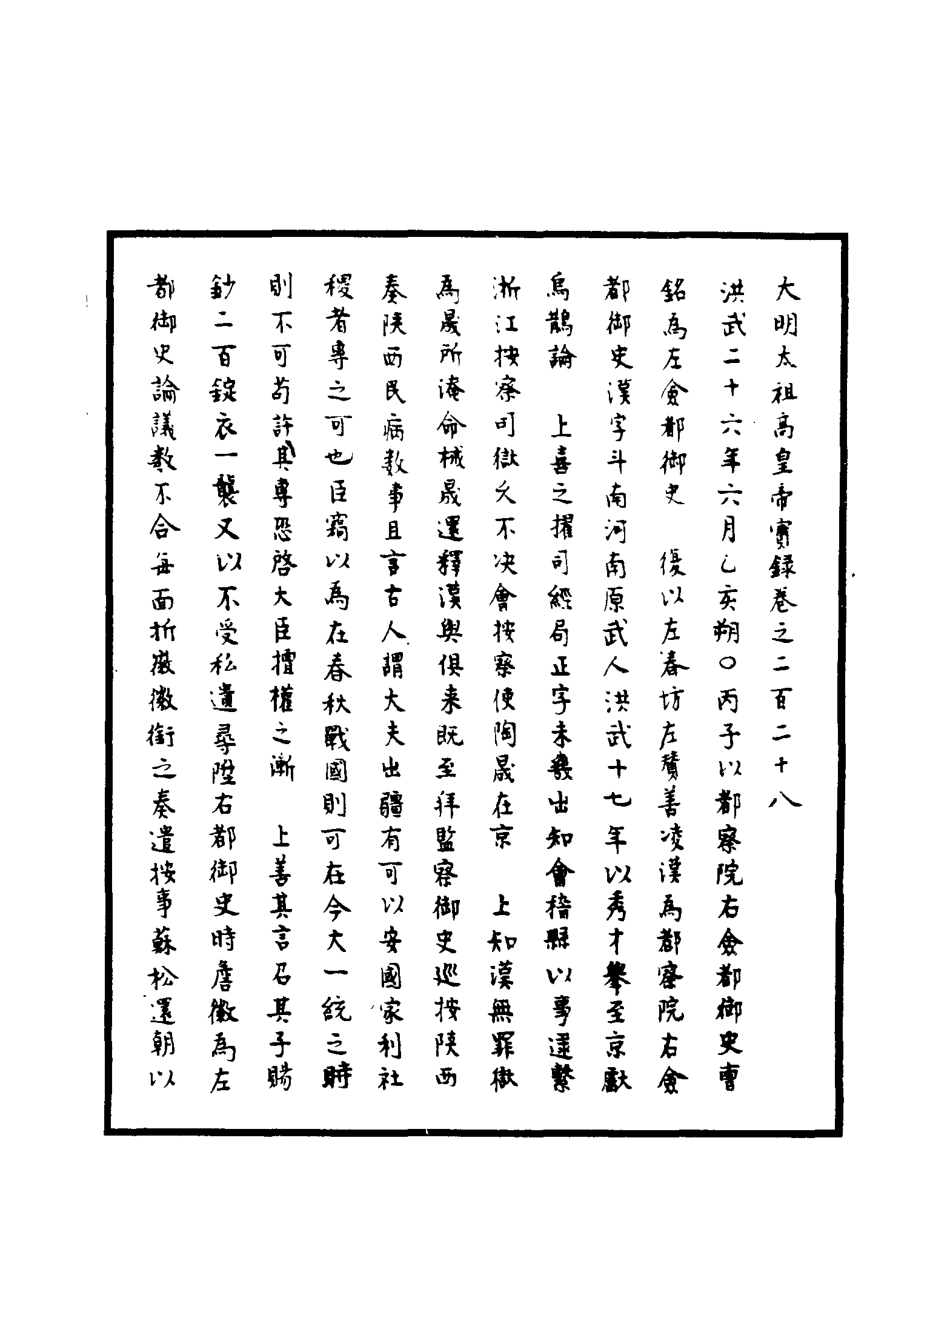 大明太祖高皇帝實錄卷之二百二十八
洪武二十六年六月乙亥朔○丙子以都察院右僉都御史曹
銘為左僉都御史　復以左春坊左贊善凌漢為都察院右僉
都御史漢字斗南河南原武人洪武十七年以秀才舉至京獻
烏鵲論　上喜之擢司經局正字未幾出知會稽縣以事逮繫
浙江按察司獄久不决會按察使陶晟在京　上知漢無罪獄
為晟所淹命械晟還釋漢與俱来既至拜監察御史巡按陝西
奏陝西民病数事且言古人謂大夫出疆有可以安國家利社
稷者專之可也臣竊以為在春秋戰國則可在今大一統之時
則不可苟許其專恐啓大臣擅權之漸　上善其言召其子賜
鈔二百錠衣一襲又以不受私遺尋陞右都御史時詹徽為左
都御史論議数不合每面折徽徽銜之奏遣按事蘇松還朝以